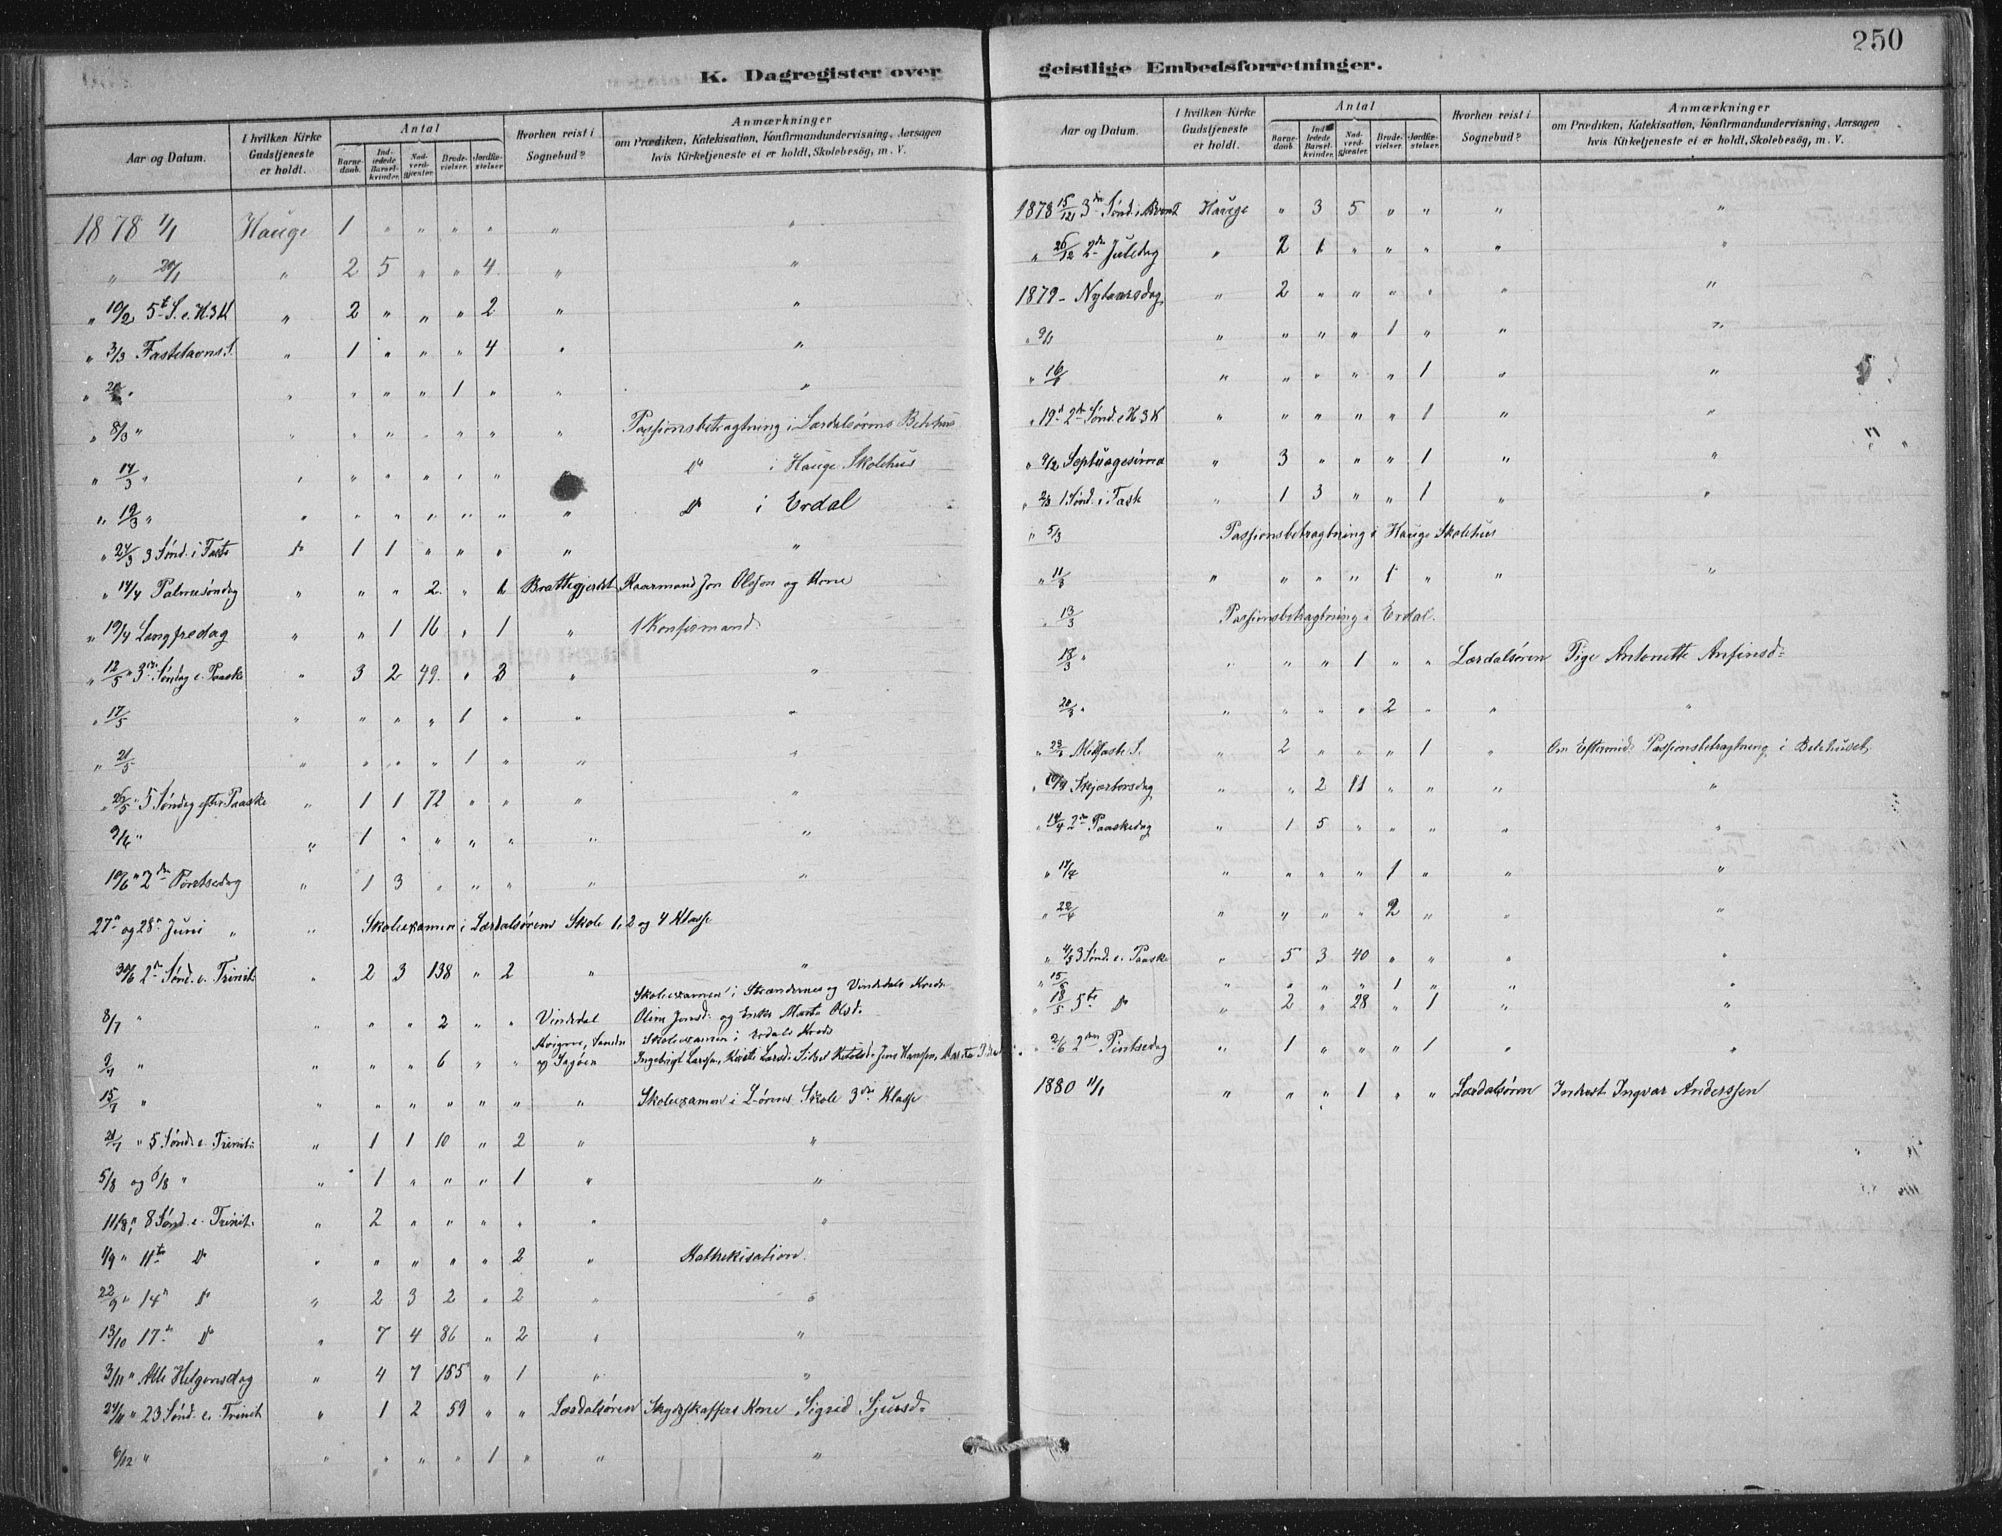 K. Dagregister over
Aar og Datum. I hvilken Kirke Gudstjeneste er holdt. Antal Barnedaab. Indledede Barselkvinder. Nadverdgjæster. Brudevielser. Jordfæstelser Hvorhen reist i Sognebud? Anmærkninger om Prædiken, Katekisation, Konfirmandundervisning, Aarsagen hvis Kirketjeneste ei er holdt, Skolebesøg, m. V.
1878 1/1 Hauge 1 " " " " " "
" 20/1 " 2 5 " " 4 " "
" 10/2 5te S. e. H.3K " 2 " " " 2 " "
" 3/3 Fastelavns S. " 1 " " " 4 " "
" " " " " 1 " " "
" 8/3 " " " " " " " " Passionsbetragtning i Lærdalsørens Bedehus
" 14/3 " " " " " " " Do i Hauge Skolehus
" 19/3 " " " " " " " " Do i Erdal
" 24/3 3 Sønd. i Faste Do 1 1 " " " " "
" 14/4 Palmesøndag " " " 2 " 1 Brattegjerdet Kaarmand Jon Olsson og Kone
" 19/4 Langfredag " " 1 16 " 1 " 1 Konfirmand
" 12/5 " 3die Søndag e. Paaske " 3 2 49 " 3 " "
" 17/5 " " " " 1 " " "
" 21/5 " " " " 1 " " "
" 26/5 " 5 Søndag efter Paaske " 1 1 72 " " " "
9/6 " " 1 " " " " " "
10/6 " 2den Pintsedag " 1 3 " " " " "
27de og 28de Juni " " Skoleexamen i Lærdalsørens Skole 1, 2 og 4 Klasse
30/6 2den Sønd. e. Trinit: " 2 3 138 " 2 " "
Skoleexamen i Strændernes og Vindedals Kreds
8/7 " " " 2 " " Vindedal Olina Jonsd: og Enke Marta Olsd.
Skoleexamen i Erdals Kreds
9/7 " " " " 6 " " Ingebrigt Larsen, Kirsti Larsd: Sitsel Ketolsd: Jens Hansen,
15/7 " " " " " " " " Skoleexamen i L-ørens Skole 3die Klasse
21/7 " 5 Sønd. e. Trinit: " 1 1 10 " 2 " "
5/8 og 6/8 " " 1 " " " 1 " "
11/8 " 8 Sønd. e. Trinit: " 2 " " " " " "
1/9 " 11te Do " " " " " 2 " Kathekisation.
22/9 " 14de Do " 2 3 2 " 2 " "
13/10 17de Do " 7 4 86 " 2 " "
3/11 " Alle Helgensdag " 4 7 155 " 1 " "
24/11 " 23 Sønd. e. Trinit " 1 2 59 " " Lærdalsøren Skydsskaffers Kone Sigrid Sjursd:
6/12 " " " " " 1 " " "
250
geistlige Embedsforretninger.
Aar og Datum. I hvilken Kirke Gudstjeneste er holdt. Antal Barnedaab. Indledede Barselkvinder. Nadverdgjæster. Brudevielser. Jordfæstelser. Hvorhen reist i Sognebud? Anmærkninger om Prædiken, Katekisation, Konfirmandundervisning, Aarsagen hvis Kirketjeneste ei er holdt, Skolebesøg, m. V.
1878 15/12 3die Sønd. i Advent Hauge " 3 5 " " " "
" 26/12 2den Juledag " 2 1 " " " " "
1879 - Nytaarsdag " 2 " " " " " "
" 9/1 " " " " 1 " " "
" 16/1 " " " " " 1 " "
" 19de 2den Sønd. e H 3 K " " " " " 1 " "
" 9/2 Septuagesima " 3 " " " 1 " "
" 2/3 1 Sønd. i Fast " 1 3 " " 1 " "
" 5/3 Passionsbetragtning i Hauge Skolehus
" 11/3 " " " " 1 " " "
" 13/3 Passionsbetragtning i Erdal.
18/3 " " " " 1 " " Lærdalsøren Tige Antonette Anfinsd:
20/3 " " " " " 2 " " "
" 23/3 Midfaste S. " 2 " " " 1 " Om Eftermid: Passionsbetragtning i Bedehuset
" 10/4 Skjærtorsdag " " 2 11 " " " "
" 14/4 2den Paaskedag " 1 5 " " " " "
" 17/4 " " " " 1 " " "
" 22/4 " " " " 2 " " "
" 4/5 3 Sønd. e. Paaske " 5 3 40 " " " "
" 15/5 " " " " 1 " " "
" 18/5 5te Do " 2 " 28 " 1 " "
" 2/6 2den Pintsedag " 1 " " " 1 " "
1880 11/1 " " " 1 " " Lærdalsøren Inderst Ingvar Anderssen